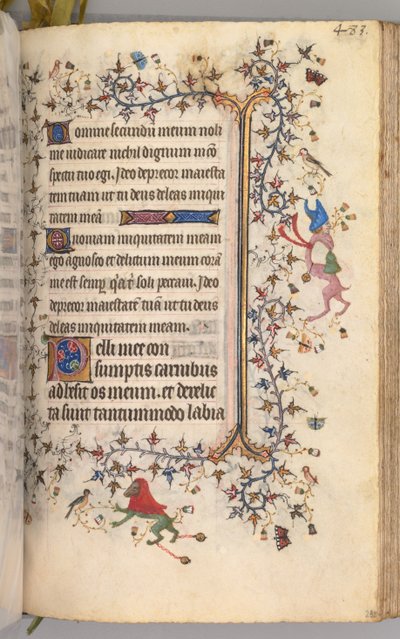 483.
Domine secundū meum noli
me iudicare nichil dignum in cō
spectu tuo egi. Ideo deprecor maiesta
tem tuam ut tu deus deleas iniqui
tatem meā
Quoniam iniquitatem meam
ego agnosco et delictum meum coram
me est semp̄ q̄ tⁱ soli peccaui. Ideo
deprecor maiestatē tuā ut tu deus
deleas iniquitatem meam.
Pelli mee con
sumptis carnibus
adhesit os meum. et derelic
ta sunt tantummodo labia